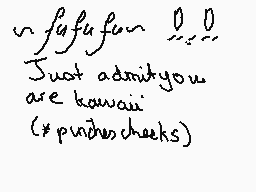 ~ fufufu~
Just admit you
are kawaii
(*pinches cheeks)